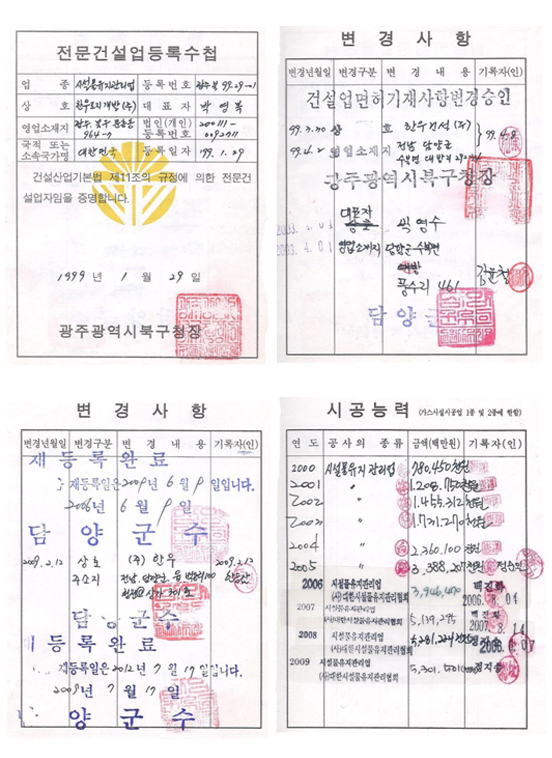 전문건설업등록수첩
업 종 시설물유지관리업 등록번호 광주북 99-29-1
상 호 한우토지개발(주) 대표자 박영복
영업소재지 광주. 북구 문흥동 964-7 법인(개인)등록번호 200111-0092711
국적 또는 소속국가명 대한민국 등록일자 1999. 1. 29
건설산업기본법 제11조의 규정에 의한 전문건
설업자임을 증명합니다.
1999 년 1 월 29 일
광주광역시북구청장
변 경 사 항
변경년월일 변경구분 변 경 내 용 기록자(인)
건설업면허기재사항변경승인
99.3.30 상 호 한우건설(주) 99.4.8
99.4.2 영업소재지 전남 담양군
수북면 대방리
광주광역시북구청장
대표자 박영수
2003. 4. 01 영업소재지 담양군 수북면
풍수리 461
담양군
변 경 사 항
변경년월일 변경구분 변 경 내 용 기록자(인)
재등록완료
재등록일은 2009년 6월 9일입니다.
2006년 6월 9일
담양군수
2009.2.12 상호 (주)한우 2009.2.12
주소지 전남 담양군
상가 301호
담양군수
재등록완료
재등록일은 2012년 7월 17일입니다.
2009년 7월 17일
양군수
시공능력 (가스시설시공업 1종 및 2종에 한함)
연 도 공사의 종류 금액(백만원) 기록자(인)
2000 시설물유지관리업 780,450천원
2001 〃 1,208,750천원
2002 〃 1,455,312천원
2003 〃 1,731,270천원
2004 〃 2,360,100천원
2005 〃 3,388,207천원
2006 시설물유지관리업 3,946,470
(사)대한시설물유지관리협회 2006. 8. 01
2007 시설물유지관리업 5,139,295
(사)대한시설물유지관리협회 2007. 8. 14
2008 시설물유지관리업 5,281,224천원
(사)대한시설물유지관리협회
2009 시설물유지관리업 5,301,501
(사)대한시설물유지관리협회